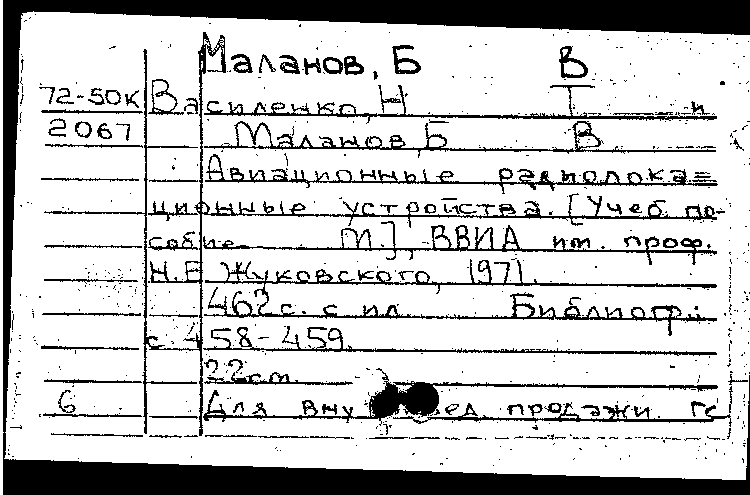 Маланов, Б В
72-50К Василенко, Н Г и
2067 Маланов, Б В
Авиационные радиолока=
ционные устройства. [Учеб. по-
собие. М.], ВВИА им. проф.
Н.Е Жуковского, 1971.
462с. с ил. Библиогр.:
с. 458-459.
22см.
6 Для вну вед. продажи